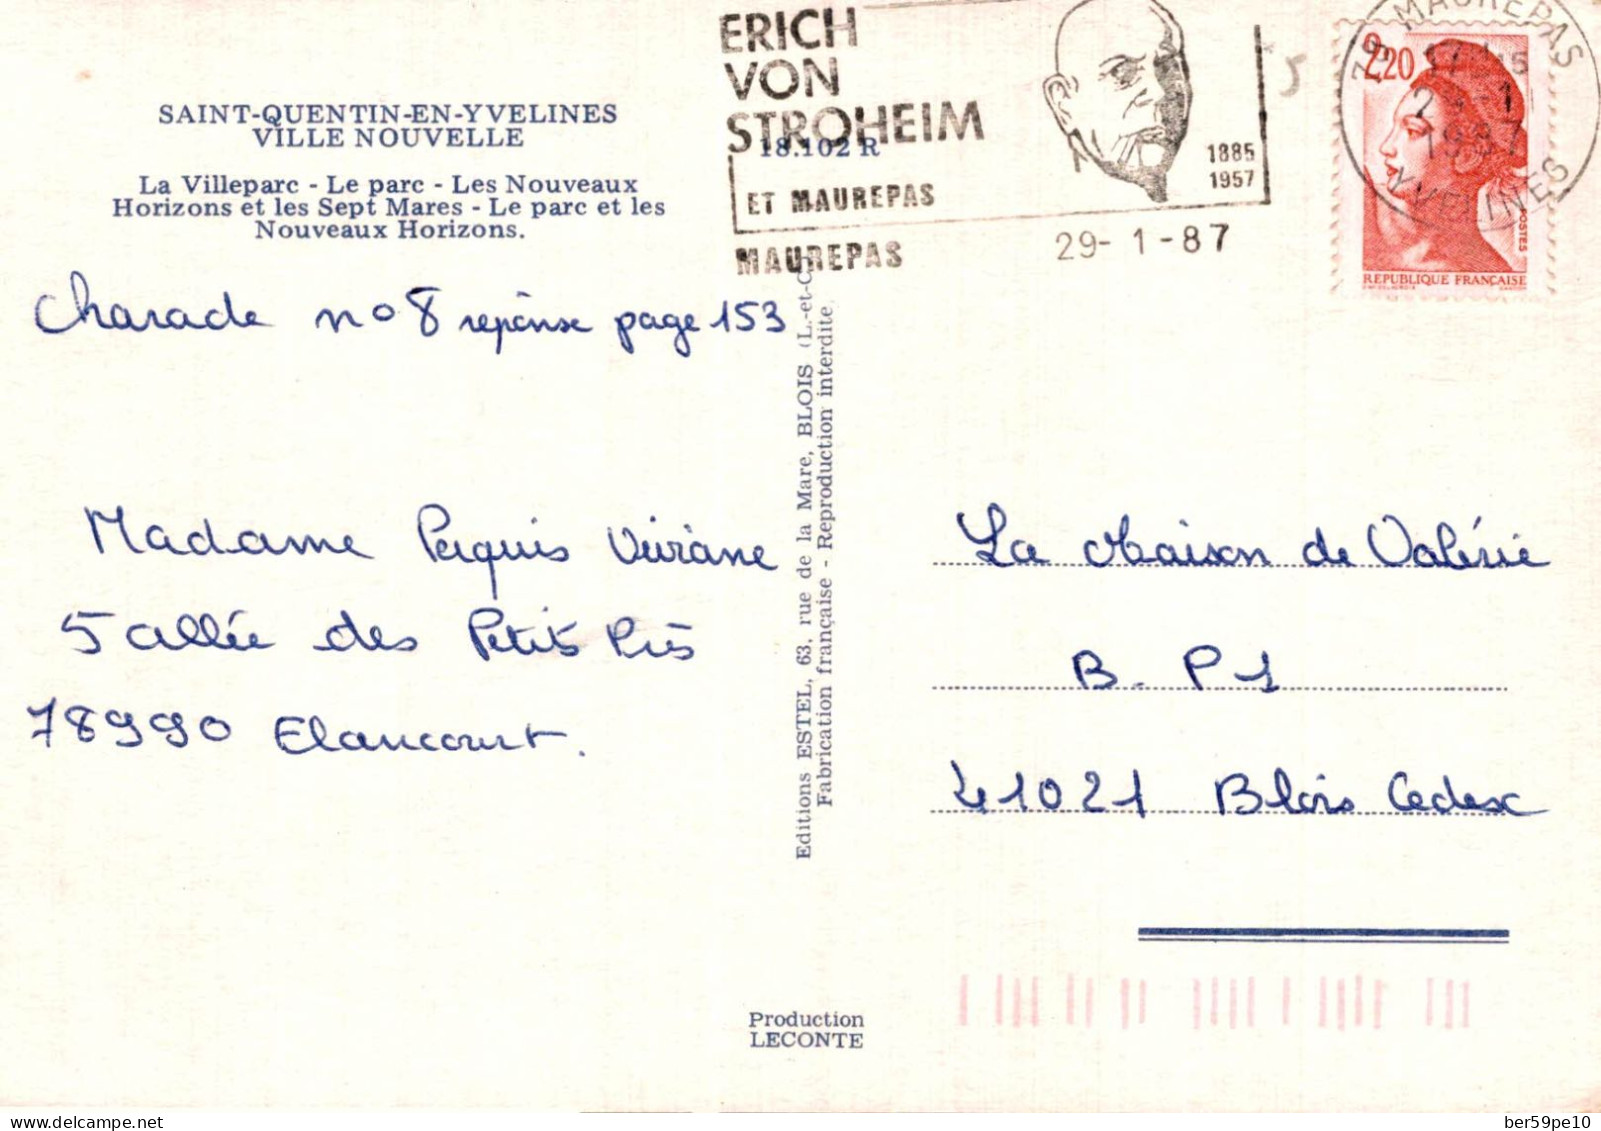 ERICH
VON
STROHEIM
1885
1957
ET MAUREPAS
MAUREPAS
29-1-87
78 MAUREPAS
1987
YVELINES
2,20
POSTES
REPUBLIQUE FRANÇAISE
SAINT-QUENTIN-EN-YVELINES
VILLE NOUVELLE
18.102 R
La Villeparc - Le parc - Les Nouveaux
Horizons et les Sept Mares - Le parc et les
Nouveaux Horizons.
Charade no 8 réponse page 153
Madame Paquis Viviane
5 allée des Petits Prés
78990 Elancourt.
Editions ESTEL, 63, rue de la Mare, BLOIS (L.-et-C
Fabrication française - Reproduction interdite
La Maison de Valérie
B. P 1
41021 Blois Cedex
Production
LECONTE
delcampe.net
ber59pe10